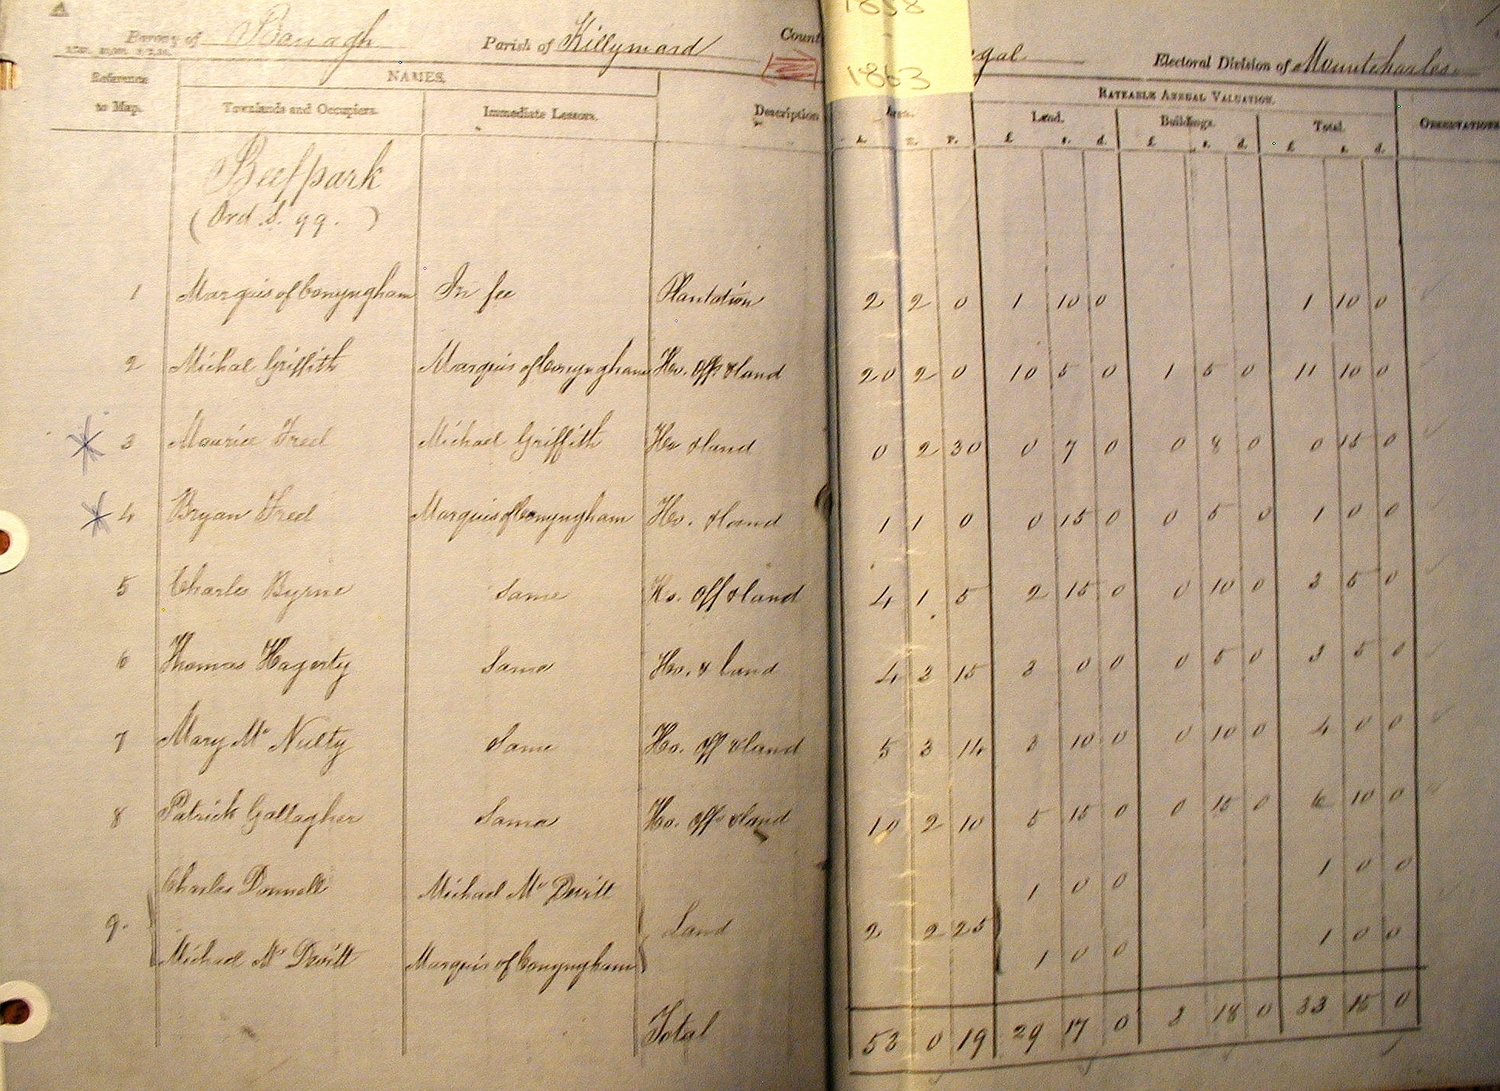 Barony of Banagh Parish of Killymard Count gal Electoral Division of Mountcharles
1858
1863
Reference to Map. NAMES. Description Area. RATEABLE ANNUAL VALUATION. OBSERVATIONS
Townlands and Occupiers. Immediate Lessors. Land. Buildings. Total.
A. R. P. £ s. d. £ s. d. £ s. d.
Beefpark
(Ord. S. 99.)
1 Marquis of Conyngham In fee Plantation 2 2 0 1 10 0 1 10 0
2 Michal Griffith Marquis of Conyngham Ho. offs & land 20 2 0 10 5 0 1 5 0 11 10 0
3 Maurice Freel Michael Griffith Ho & land 0 2 30 0 7 0 0 8 0 0 15 0
4 Bryan Freel Marquis of Conyngham Ho. & land 1 1 0 0 15 0 0 5 0 1 0 0
5 Charles Byrne Same Ho. off & land 4 1 5 2 15 0 0 10 0 3 5 0
6 Thomas Hagerty Same Ho. & land 4 3 15 3 0 0 0 5 0 3 5 0
7 Mary Mc Nulty Same Ho. off & land 5 3 14 3 10 0 0 10 0 4 0 0
8 Patrick Gallagher Same Ho. offs & land 10 2 10 5 15 0 0 15 0 6 10 0
Charles Donnell Michael Mc Devitt 1 0 0 1 0 0
9. Land 2 2 25
Michael Mc Devitt Marquis of Conyngham 1 0 0 1 0 0
Total 53 0 19 29 17 0 3 18 0 33 15 0